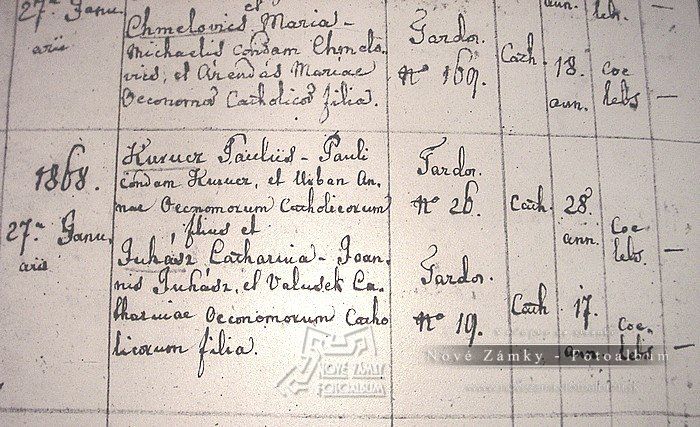 et
27ª Janu
arii
Chmelovics Maria -
Michaelis condam Chmelo
vics, et Arendás Mariae
Oeconomor Catholicor filia.
Tardos.
Nº 169.
Cath.
18.
ann.
Coe
lebs
—
ann.
lebs.
1868.
27ª Janu.
arii
Kurucz Paulus - Pauli
condam Kurucz, et Urban An-
nae Oecnomorum Catholicorum
filius et
Juhász Catharina - Joan-
nis Juhász, et Valusek Ca-
tharinae Oeconomorum Catho
licorum filia.
Tardos.
Nº 26.
Cath.
28.
ann.
Coe
lebs.
—
Tardos.
Nº 19.
Cath
17.
ann.
Coe-
lebs
—
NOVÉ ZÁMKY
FOTOALBUM
Nové Zámky - Fotoalbum